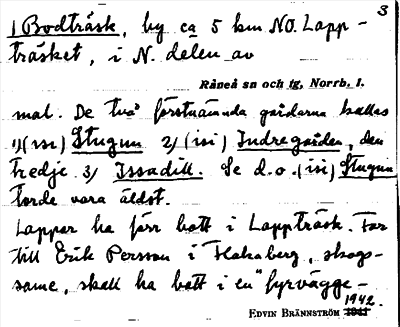 3
1 Bodträsk, by ca 5 km NO. Lapp-
träsket, i N. delen av
Råneå sn och tg, Norrb. l.
mal. De två förstnämnda gårdarna kallas
1) (isi) Stugun 2) (isi) Indregården, den
tredje 3) Issadill. Se d.o. (isi) Stugun
torde vara äldst.
Lappar ha förr bott i Lappträsk. Far
till Erik Persson i Flakaberg, skogs-
same, skall ha bott i en "fyrvägge-
1942.
EDVIN BRÄNNSTRÖM 1941